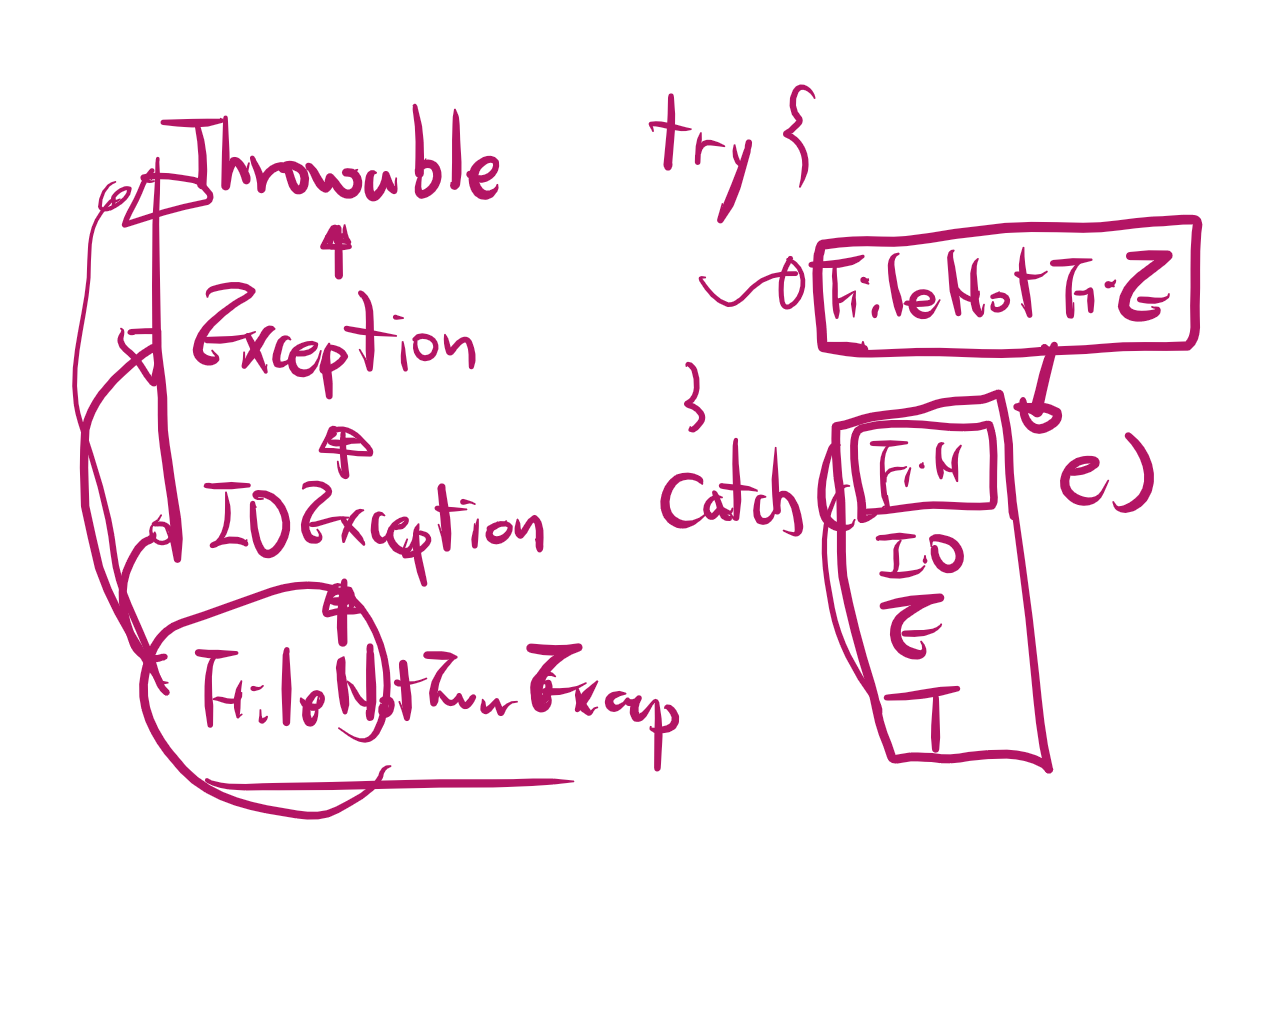 Throwable
Exception
IOException
FileNot Excep
try {
FileNotF.E
}
catch e)
F.N
I.O
E
T